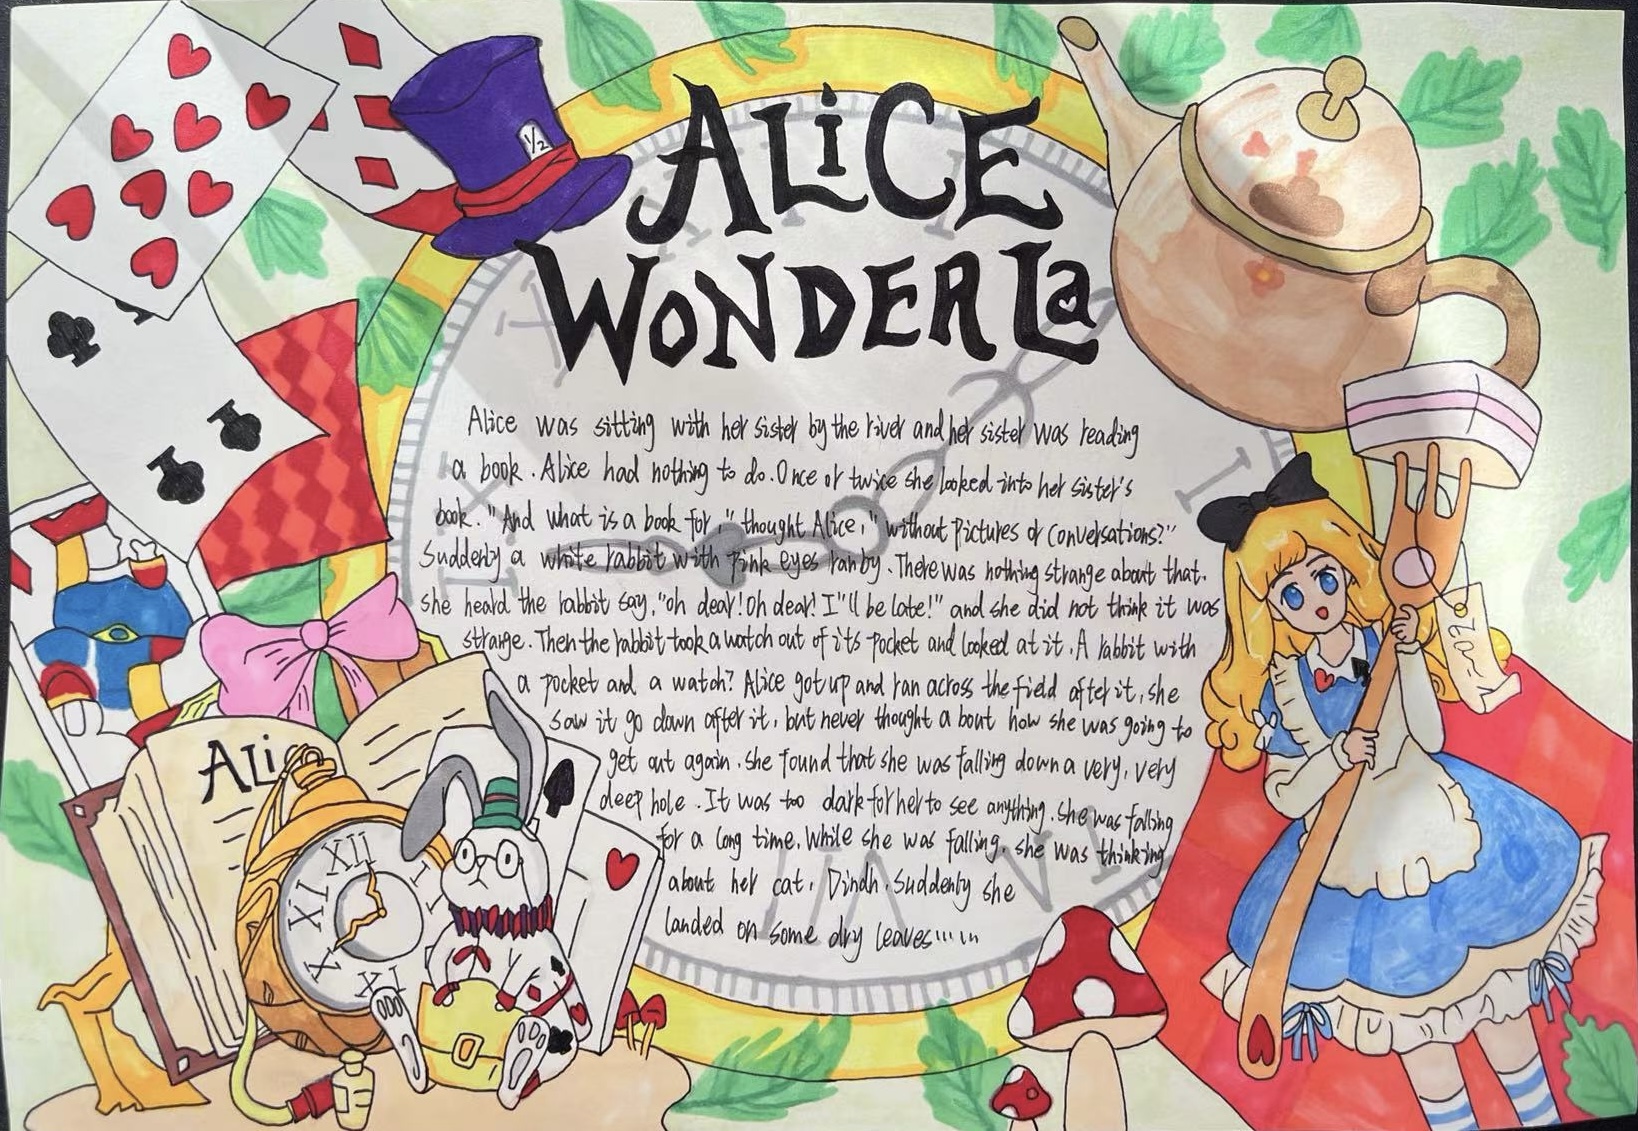 ALiCE
WONDERLa
Alice was sitting with her sister by the river and her sister was reading
a book. Alice had nothing to do. Once or twice she looked into her sister's
book. "And what is a book for," thought Alice," without Pictures or Conversations?"
Suddenly a white rabbit with Pink eyes ran by. There was nothing strange about that.
she heard the rabbit say, "oh dear! Oh dear! I"ll be late!" and she did not think it was
strange. Then the rabbit took a watch out of its Pocket and looked at it. A rabbit with
a pocket and a watch? Alice got up and ran across the field after it, she
saw it go down after it, but never thought a bout how she was going to
get out again. she found that she was falling down a very, very
deep hole. It was too dark for her to see anything. she was falling
for a long time. While she was falling, she was thinking
about her cat, Dindh. Suddenly she
landed on some dry leaves......
1/2
ALi
XII
I
XI
X